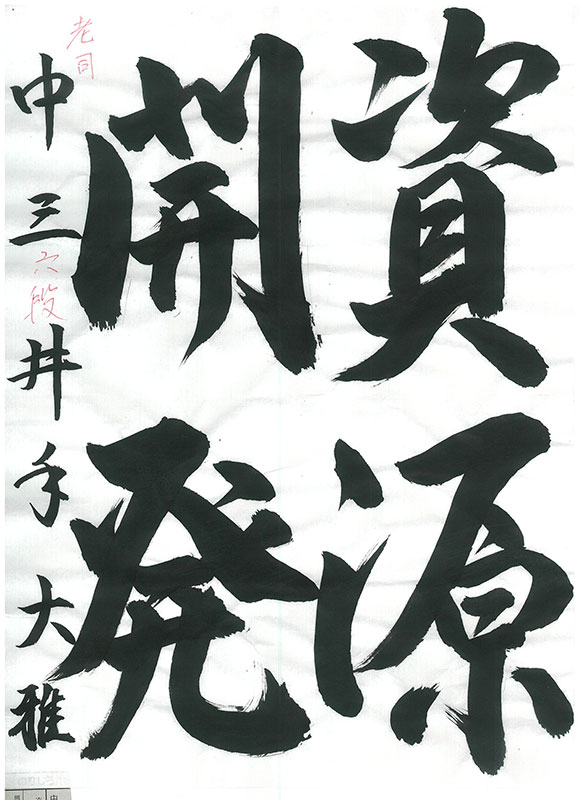 資源
開発
中三 井手大雅
老司
六段